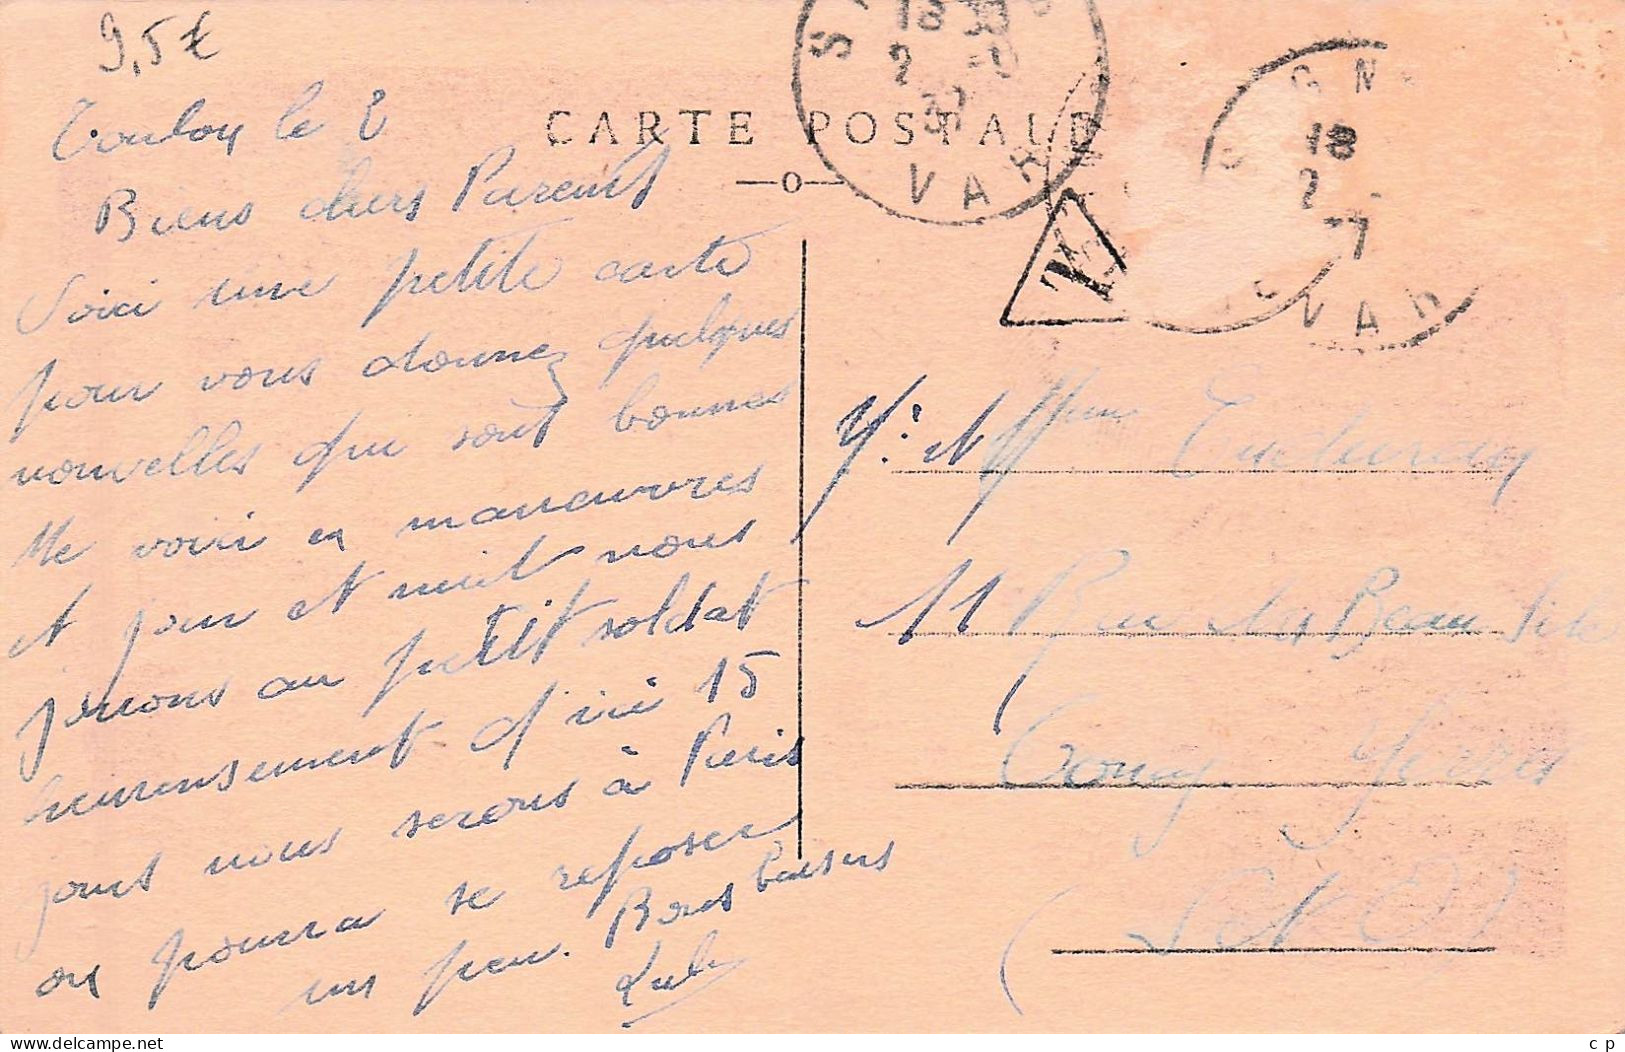 9,5€
Toulon le 2
CARTE POSTALE
18
2
VAR
GN
18
2
-7
VAR
T
Biens chers Parents
Voici une petite carte
pour vous donnez quelques
nouvelles qui sont bonnes
Me voici en manœuvres
et jour et nuit nous
jouons au petit soldat
heureusement d'ici 15
jours nous serons à Paris
on pourra se reposer
un peu. Bons baisers
11 Rue du Beau Site
Yerres
(S et O)
delcampe.net
c p